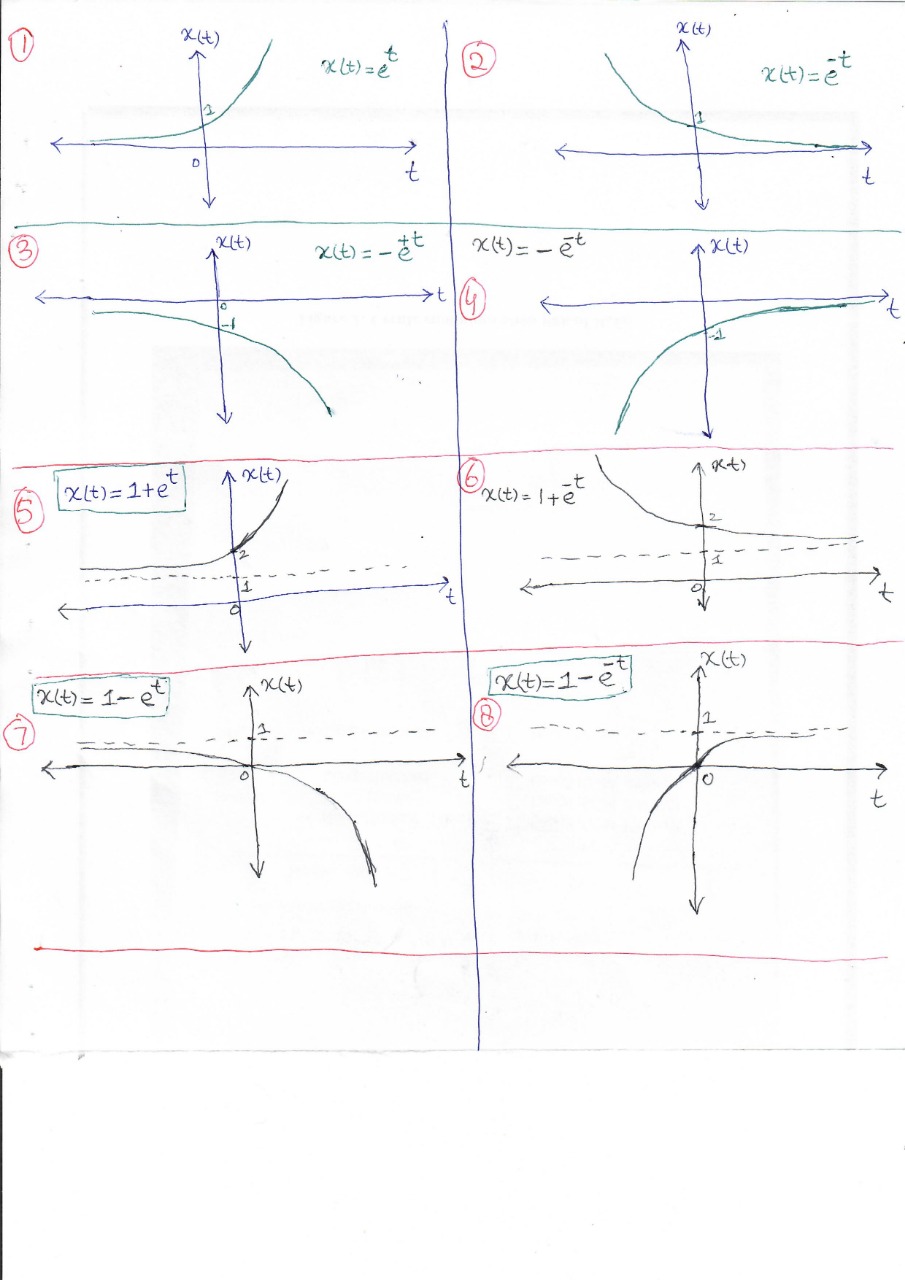 ①
x(t)
x(t) = e^t
1
0
t
②
x(t)
x(t) = e^-t
1
t
③
x(t)
x(t) = -e^+t
t
0
-1
x(t) = -e^-t
④
x(t)
t
-1
⑤
x(t) = 1+e^t
x(t)
2
1
0
t
⑥
x(t) = 1+e^-t
x(t)
2
1
0
t
⑦
x(t) = 1-e^t
x(t)
1
0
t
⑧
x(t) = 1-e^-t
x(t)
1
0
t